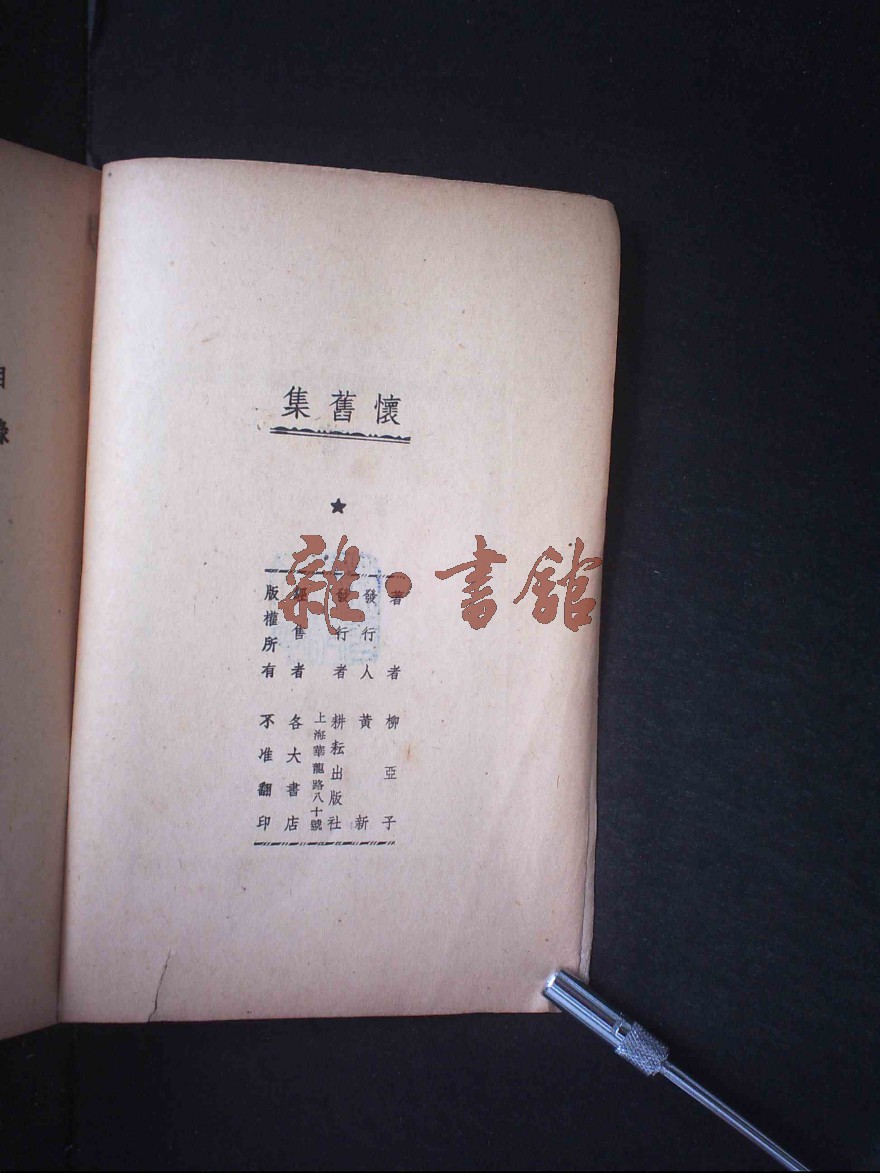 懷舊集
著者 柳亞子
發行人 黃新
發行者 耕耘出版社
上海華龍路八十號
經售者 各大書店
版權所有 不准翻印
雜·書館